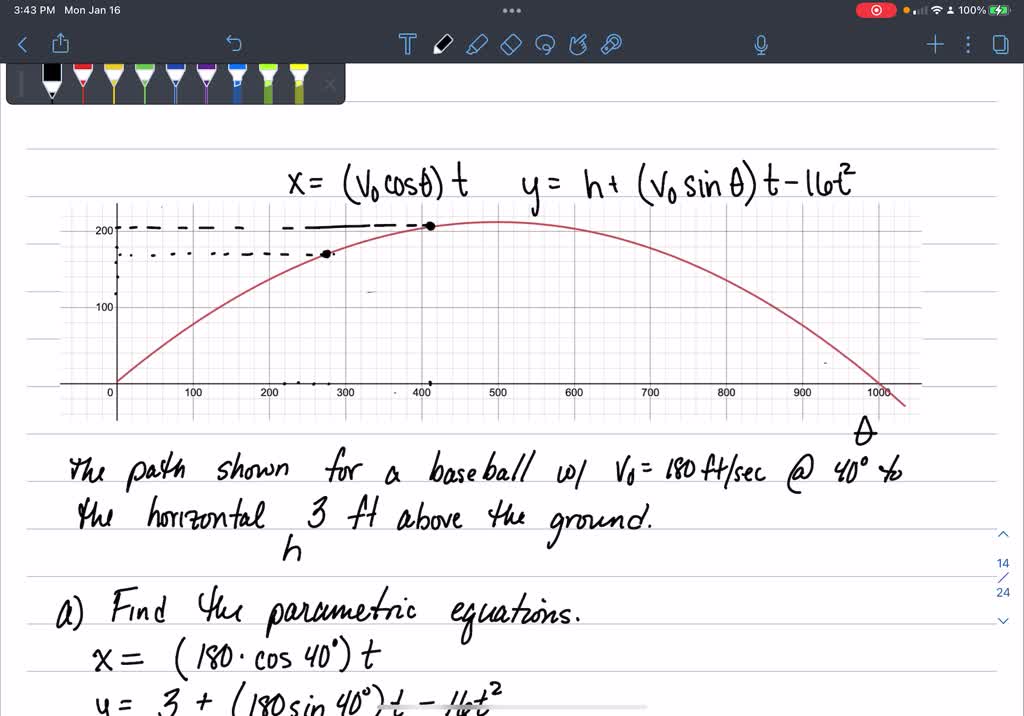 3:43 PM Mon Jan 16
100%
x = (V₀ cosθ) t y = h + (V₀ sin θ) t - 16t²
200
100
0 100 200 300 400 500 600 700 800 900 1000
θ
The path shown for a baseball w/ V₀ = 180 ft/sec @ 40° to
the horizontal 3 ft above the ground.
h
14
/
24
a) Find the parametric equations.
x = (180 · cos 40°) t
y = 3 + (180 sin 40°) t - 16t²